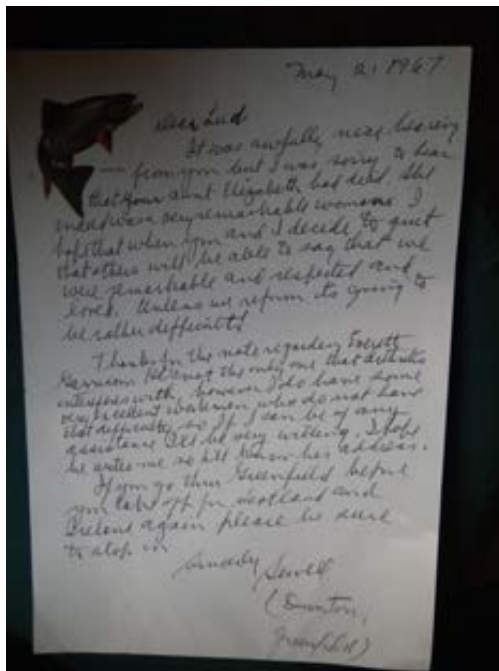 May 2, 1967
Dear Lud
It was awfully nice hearing
from you but I was sorry to hear
that your aunt Elizabeth had died. She
indeed was a very remarkable woman. I
hope that when you and I decide to quit
that others will be able to say that we
were remarkable and respected and
loved. Unless we reform its going to
be rather difficult!
Thanks for the note regarding Everett
Garrison. He's not the only one that arthritis
interferes with, however I do have some
very excellent workmen who do not have
that difficulty so if I can be of any
assistance I'll be very willing. I hope
he writes me so I'll know his address.
If you go thru Greenfield before
you take off for Scotland and
Ireland again please be sure
to stop in
Sincerely Sewell
(Dunton,
Greenfield)